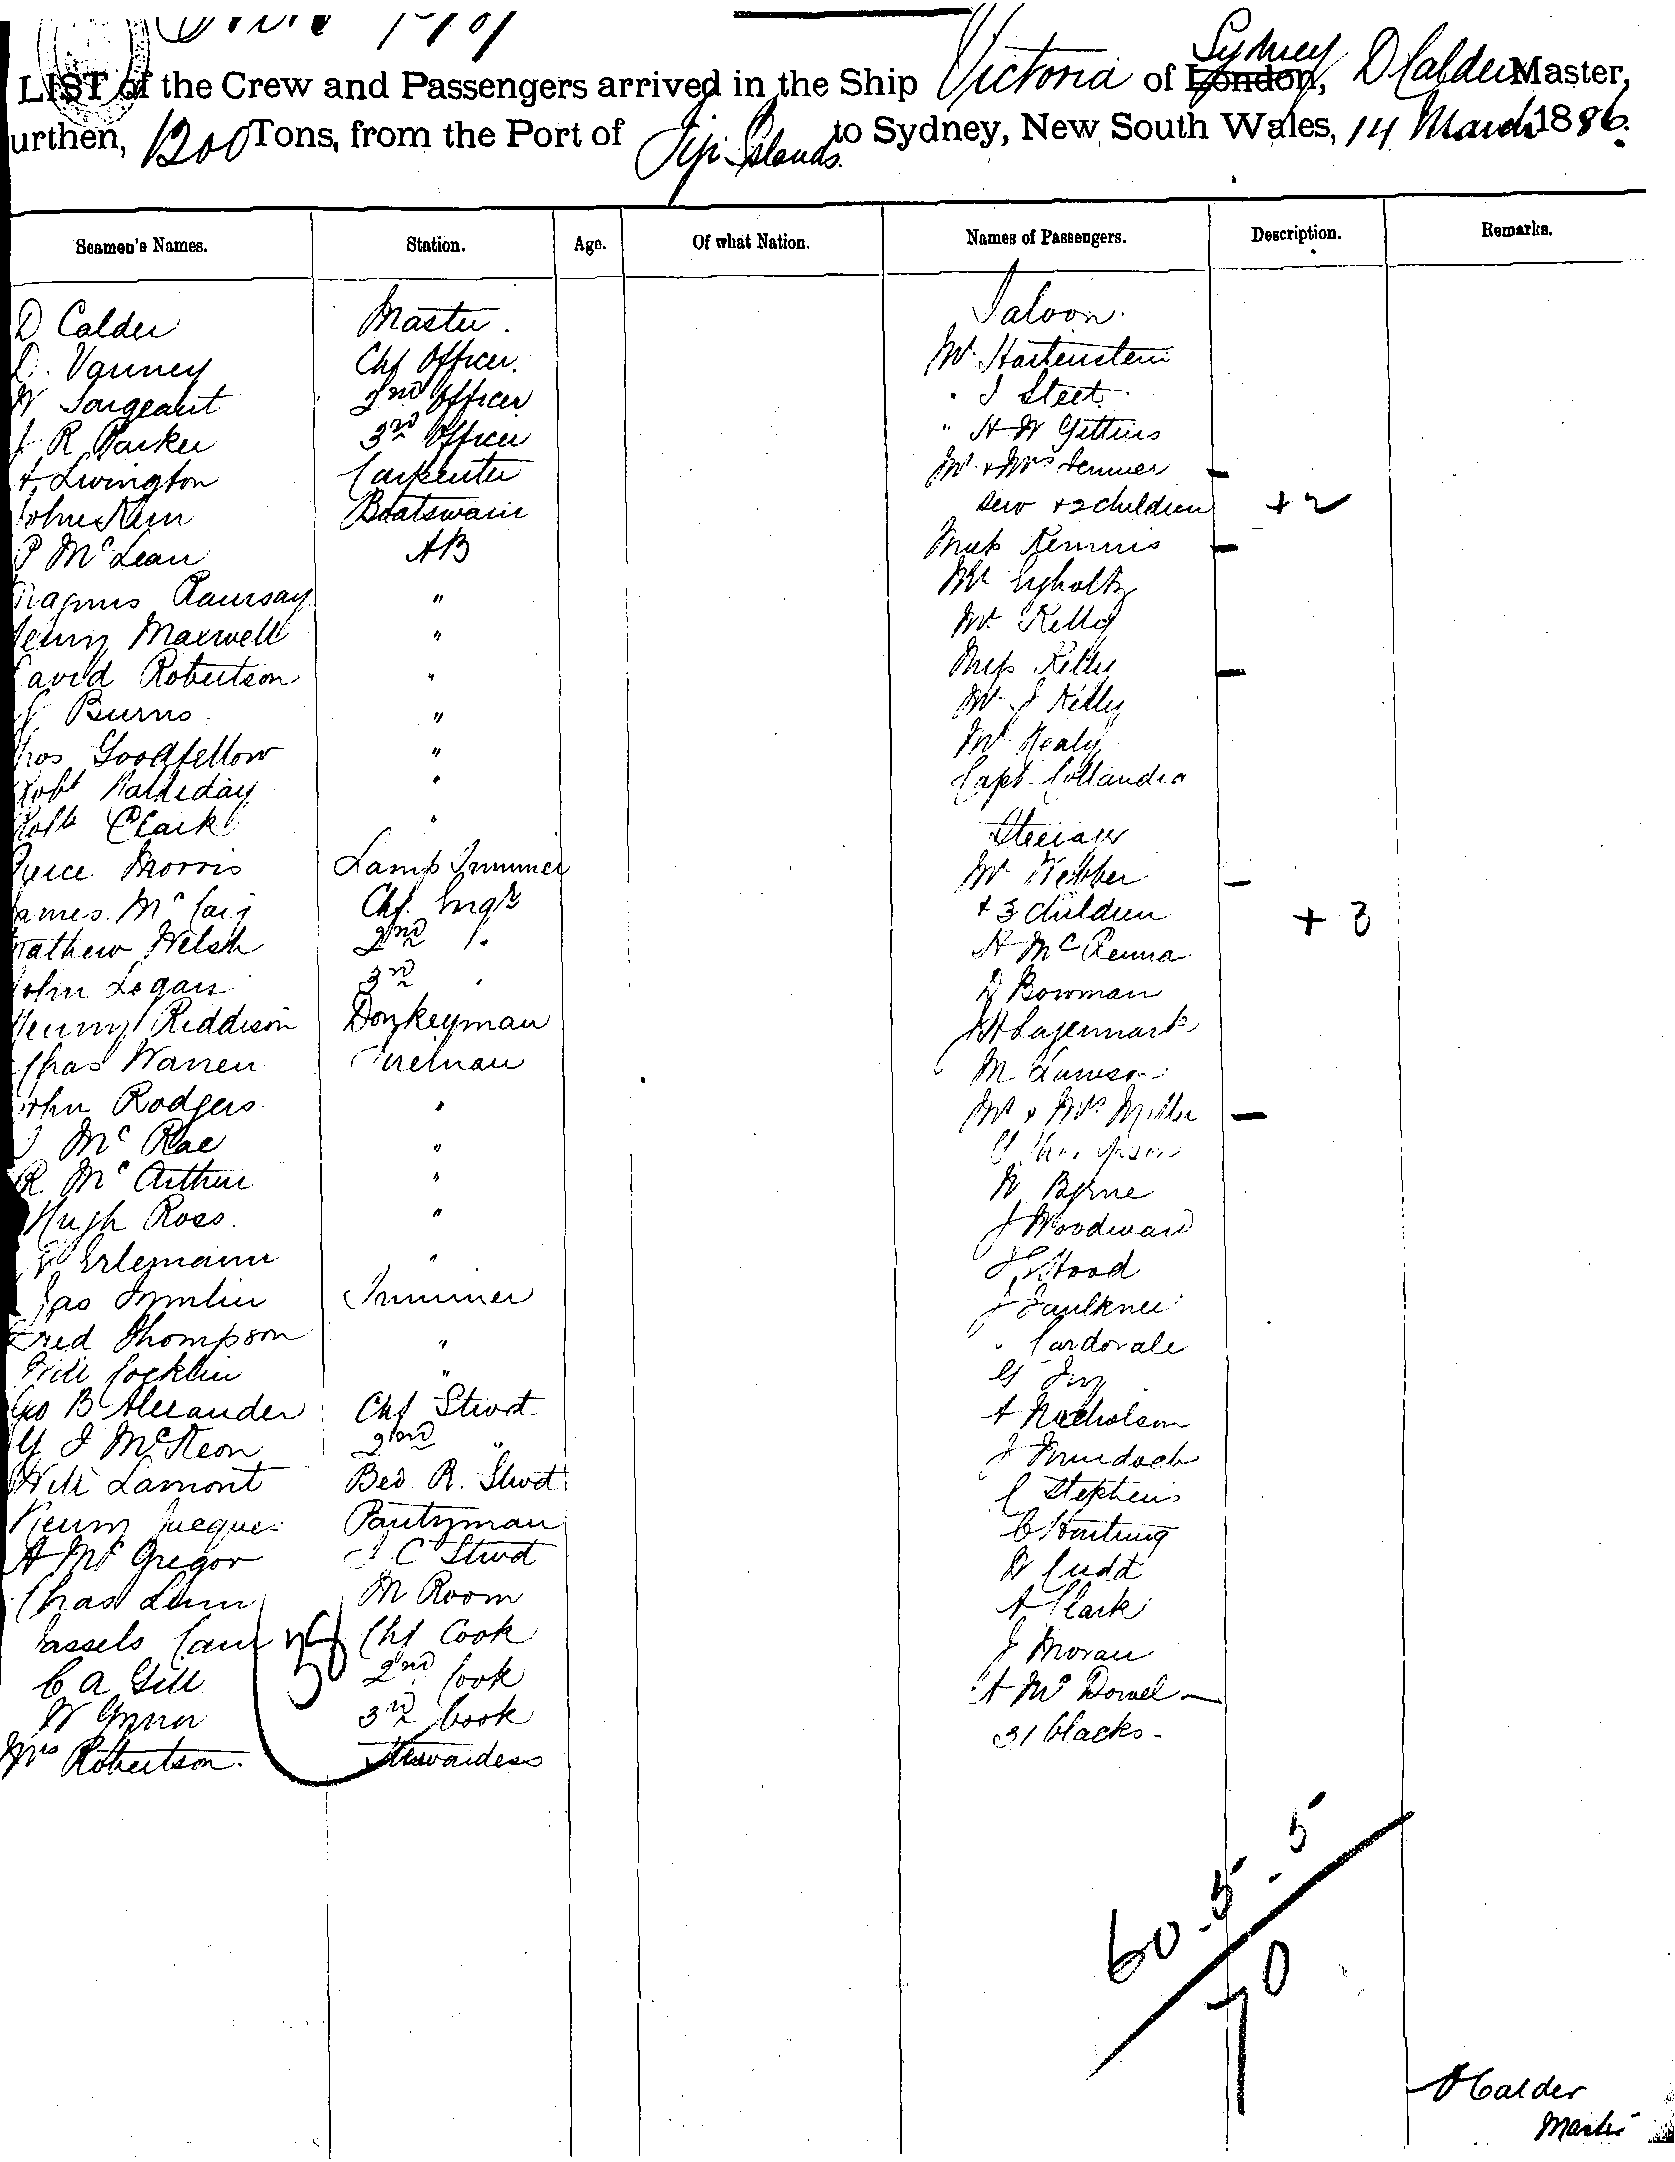 LIST of the Crew and Passengers arrived in the Ship Victoria of London, Sydney D Calder Master,
urthen, 1200 Tons, from the Port of Fiji Islands to Sydney, New South Wales, 14 March 1886.
Seamen's Names. Station. Age. Of what Nation. Names of Passengers. Description. Remarks.
D Calder Master. Saloon.
Vanney Chf Officer. Mr Hartenstein
W Sargeant 2nd Officer " J Steet
J R Parker 3rd Officer " H W Gittins
Livington Carpenter Mr & Mrs
John Boatswain serv + 2 children + 2
P McLean AB Miss Kemmis
Magnus Ramsay " Mr
Henry Maxwell " Mr Kelly
David Robertson " Miss Kelly
Burns " Mr J Kelly
Thos Goodfellow " Mr Healy
Robt Halliday " Capt
Robt Clark " Steerage
Morris Lamp Trimmer Mr Webber
James McCaig Chf. Engr + 3 children + 3
Mathew Welsh 2nd " H McKenna
John Logan 3rd " Bowman
Henry Riddison Donkeyman
Chas Warren Fireman M
John Rodgers " Mr & Mrs Miller
McRae "
R McArthur " W Byrne
Hugh Ross. " J Woodward
Erlemann " Hood
Jas Tumlin Trimmer J Faulkner
Fred Thompson " " Cardovale
Will Cocklin " G
Geo B Alexander Chf Stwd A Nicholson
G J McKeon 2nd " J Murdoch
Will Lamont Bed R. Stwd C Stephens
Henry Jacques Pantryman C Hartung
A McGregor S C Stwd W Cudd
Chas Lunn M Room A Clark
Cassels Cam Chf Cook J Moran
C A Gill 2nd Cook A McDowel
W 3rd Cook 31 blacks
Mrs Robertson. Stewardess
60. 5. 5
70
D Calder
Master